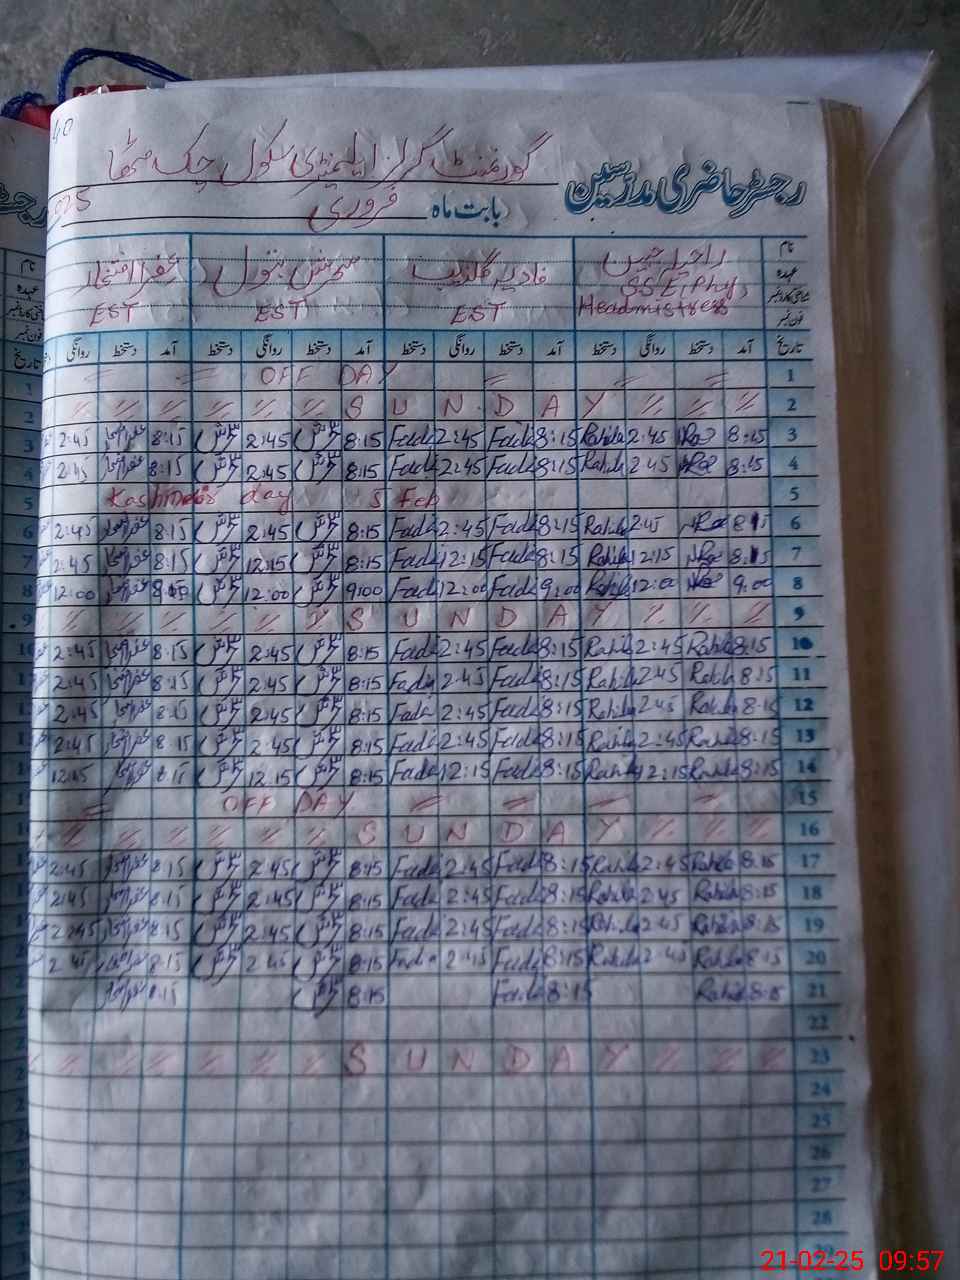 40
گورنمنٹ گرلز ایلیمنٹری سکول چک
رجسٹر حاضری مدرسین
بابت ماہ فروری 025
نام راحیلہ جبیں فادیہ گلزیب سحرش بتول عفرا افتخار
عہدہ SSE(Phy) EST EST EST
Headmistress
فون نمبر
تاریخ آمد دستخط روانگی دستخط آمد دستخط روانگی دستخط آمد دستخط روانگی دستخط آمد دستخط روانگی
1 OFF DAY
2 SUNDAY
3 8:15 2:45 Rahila 8:15 Fadi 2:45 Fadi 8:15 سحرش 2:45 سحرش 8:15 2:45
4 8:15 2:45 Rahila 8:15 Fadi 2:45 Fadi 8:15 سحرش 2:45 سحرش 8:15 2:45
5 Kashmir day 5 Feb
6 8:15 2:45 Rahila 8:15 Fadi 2:45 Fadi 8:15 سحرش 2:45 سحرش 8:15 2:45
7 8:15 12:15 Rahila 8:15 Fadi 12:15 Fadi 8:15 سحرش 12:15 سحرش 8:15 2:45
8 9:00 12:00 Rahila 9:00 Fadi 12:00 Fadi 9:00 سحرش 12:00 سحرش 12:00
9 SUNDAY
10 8:15 Rahila 2:45 Rahila 8:15 Fadi 2:45 Fadi 8:15 سحرش 2:45 سحرش 8:15 2:45
11 8:15 Rahila 2:45 Rahila 8:15 Fadi 2:45 Fadia 8:15 سحرش 2:45 سحرش 8:15 2:45
12 8:15 Rahila 2:45 Rahila 8:15 Fadi 2:45 Fadi 8:15 سحرش 2:45 سحرش 8:15 2:45
13 8:15 Rahila 2:45 Rahila 8:15 Fadi 2:45 Fadi 8:15 سحرش 2:45 سحرش 8:15 2:45
14 8:15 Rahila 12:15 Rahila 8:15 Fadi 12:15 Fadi 8:15 سحرش 12:15 سحرش 8:15 12:15
15 OFF DAY
16 SUNDAY
17 8:15 Rahila 2:45 Rahila 8:15 Fadi 2:45 Fadi 8:15 سحرش 2:45 سحرش 8:15 2:45
18 8:15 Rahila 2:45 Rahila 8:15 Fadi 2:45 Fadi 8:15 سحرش 2:45 سحرش 8:15 2:45
19 8:15 Rahila 2:45 Rahila 8:15 Fadi 2:45 Fadi 8:15 سحرش 2:45 سحرش 8:15 2:45
20 8:15 Rahila 2:45 Rahila 8:15 Fadi 2:45 Fadia 8:15 سحرش 2:45 سحرش 8:15 2:45
21 8:15 Rahila 8:15 Fadi 8:15 سحرش 8:15
22
23 SUNDAY
24
25
26
27
28
21-02-25 09:57